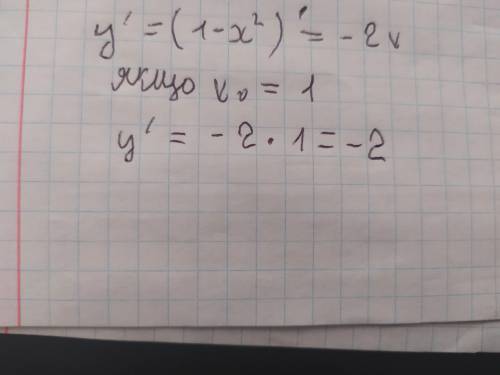 y' = (1-x²)' = -2x
якщо x₀ = 1
y' = -2 · 1 = -2